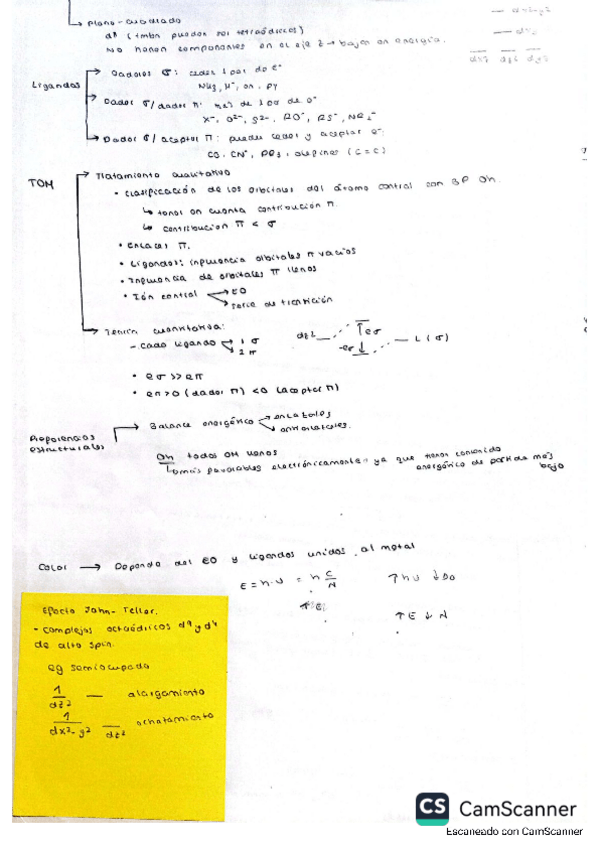 Plano-cuadrado
d⁸ (tmbn pueden ser tetraédricos)
No tienen componentes en el eje z → bajan en energía.
dx²-y²
dz²
dxz dyz dxy
Ligandos
Dadores σ: ceden 1 par de e⁻
NH₃, H⁻, en, py
Dador σ/dador π: más de 1 par de e⁻
X⁻, O²⁻, S²⁻, RO⁻, RS⁻, NR₂⁻
Dador σ/aceptor π: pueden ceder y aceptar e⁻.
CO, CN⁻, PR₃, olefinas (C=C)
TOM
Tratamiento cualitativo
• Clasificación de los orbitales del átomo central con GP Oh.
↳ tener en cuenta contribución π.
↳ contribución π < σ
• Enlaces π.
• Ligandos: influencia orbitales π vacíos
• Influencia de orbitales π llenos
• Ión central → EO
→ serie de transición
→ Teoría cuantitativa:
- Cada ligando → 1 σ
→ 2 π
dz²
eσ
-eσ
L (σ)
• eσ >> eπ
• eπ>0 (dador π) <0 (aceptor π)
Preferencias
estructurales
Balance energético → enlatales
antienlatales.
Oh todos OM llenos
↳ más favorables electrónicamente ya que tienen contenido
energético de partida más
bajo
Color → Depende del EO y ligandos unidos al metal
E = h·ν = h C/λ
↑hν ↓Δo
↑E
↑E ↓ λ
Efecto Jahn-Teller.
- Complejos octaédricos d⁹ y d⁴
de alto spin.
eg semiocupado
1
dz²
alargamiento
1
dx²-y² dz² achatamiento
CS CamScanner
Escaneado con CamScanner